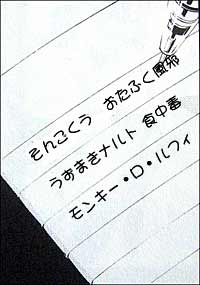 そんごくう　おたふく風邪
うずまきナルト 食中毒
モンキー・D・ルフィ